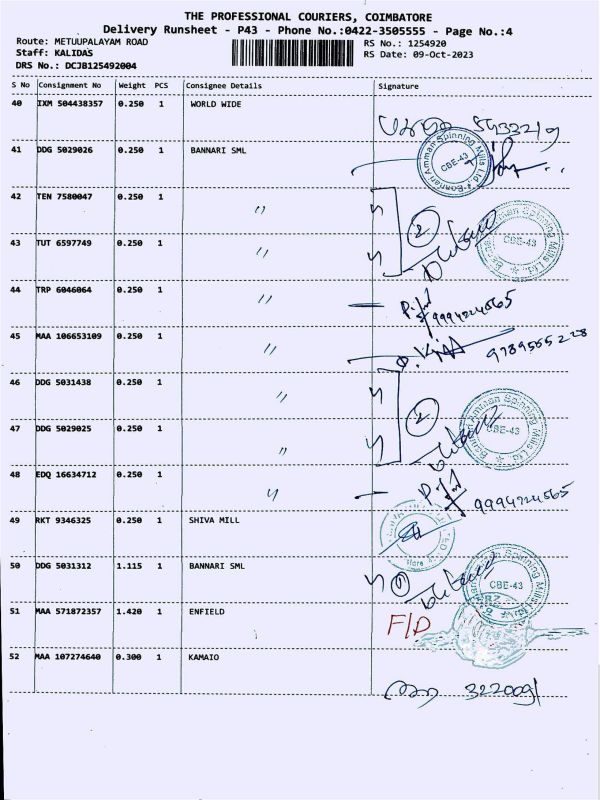 THE PROFESSIONAL COURIERS, COIMBATORE
Delivery Runsheet - P43 - Phone No.:0422-3505555 - Page No.:4
Route: METUUPALAYAM ROAD RS No.: 1254920
Staff: KALIDAS RS Date: 09-Oct-2023
DRS No.: DCJB125492004
S No Consignment No Weight PCS Consignee Details Signature
40 IXM 504438357 0.250 1 WORLD WIDE
41 DDG 5029026 0.250 1 BANNARI SML
Bannari Amman Spinning Mills Ltd. CBE-43
42 TEN 7580047 0.250 1 "
2
43 TUT 6597749 0.250 1 "
CBE-43
44 TRP 6046064 0.250 1 "
45 MAA 106653109 0.250 1 "
9789555228
46 DDG 5031438 0.250 1 "
2
47 DDG 5029025 0.250 1 "
CBE-43
48 EDQ 16634712 0.250 1 "
9994224565
49 RKT 9346325 0.250 1 SHIVA MILL
50 DDG 5031312 1.115 1 BANNARI SML
1
CBE-43
51 MAA 571872357 1.420 1 ENFIELD
F/D
52 MAA 107274640 0.300 1 KAMAIO